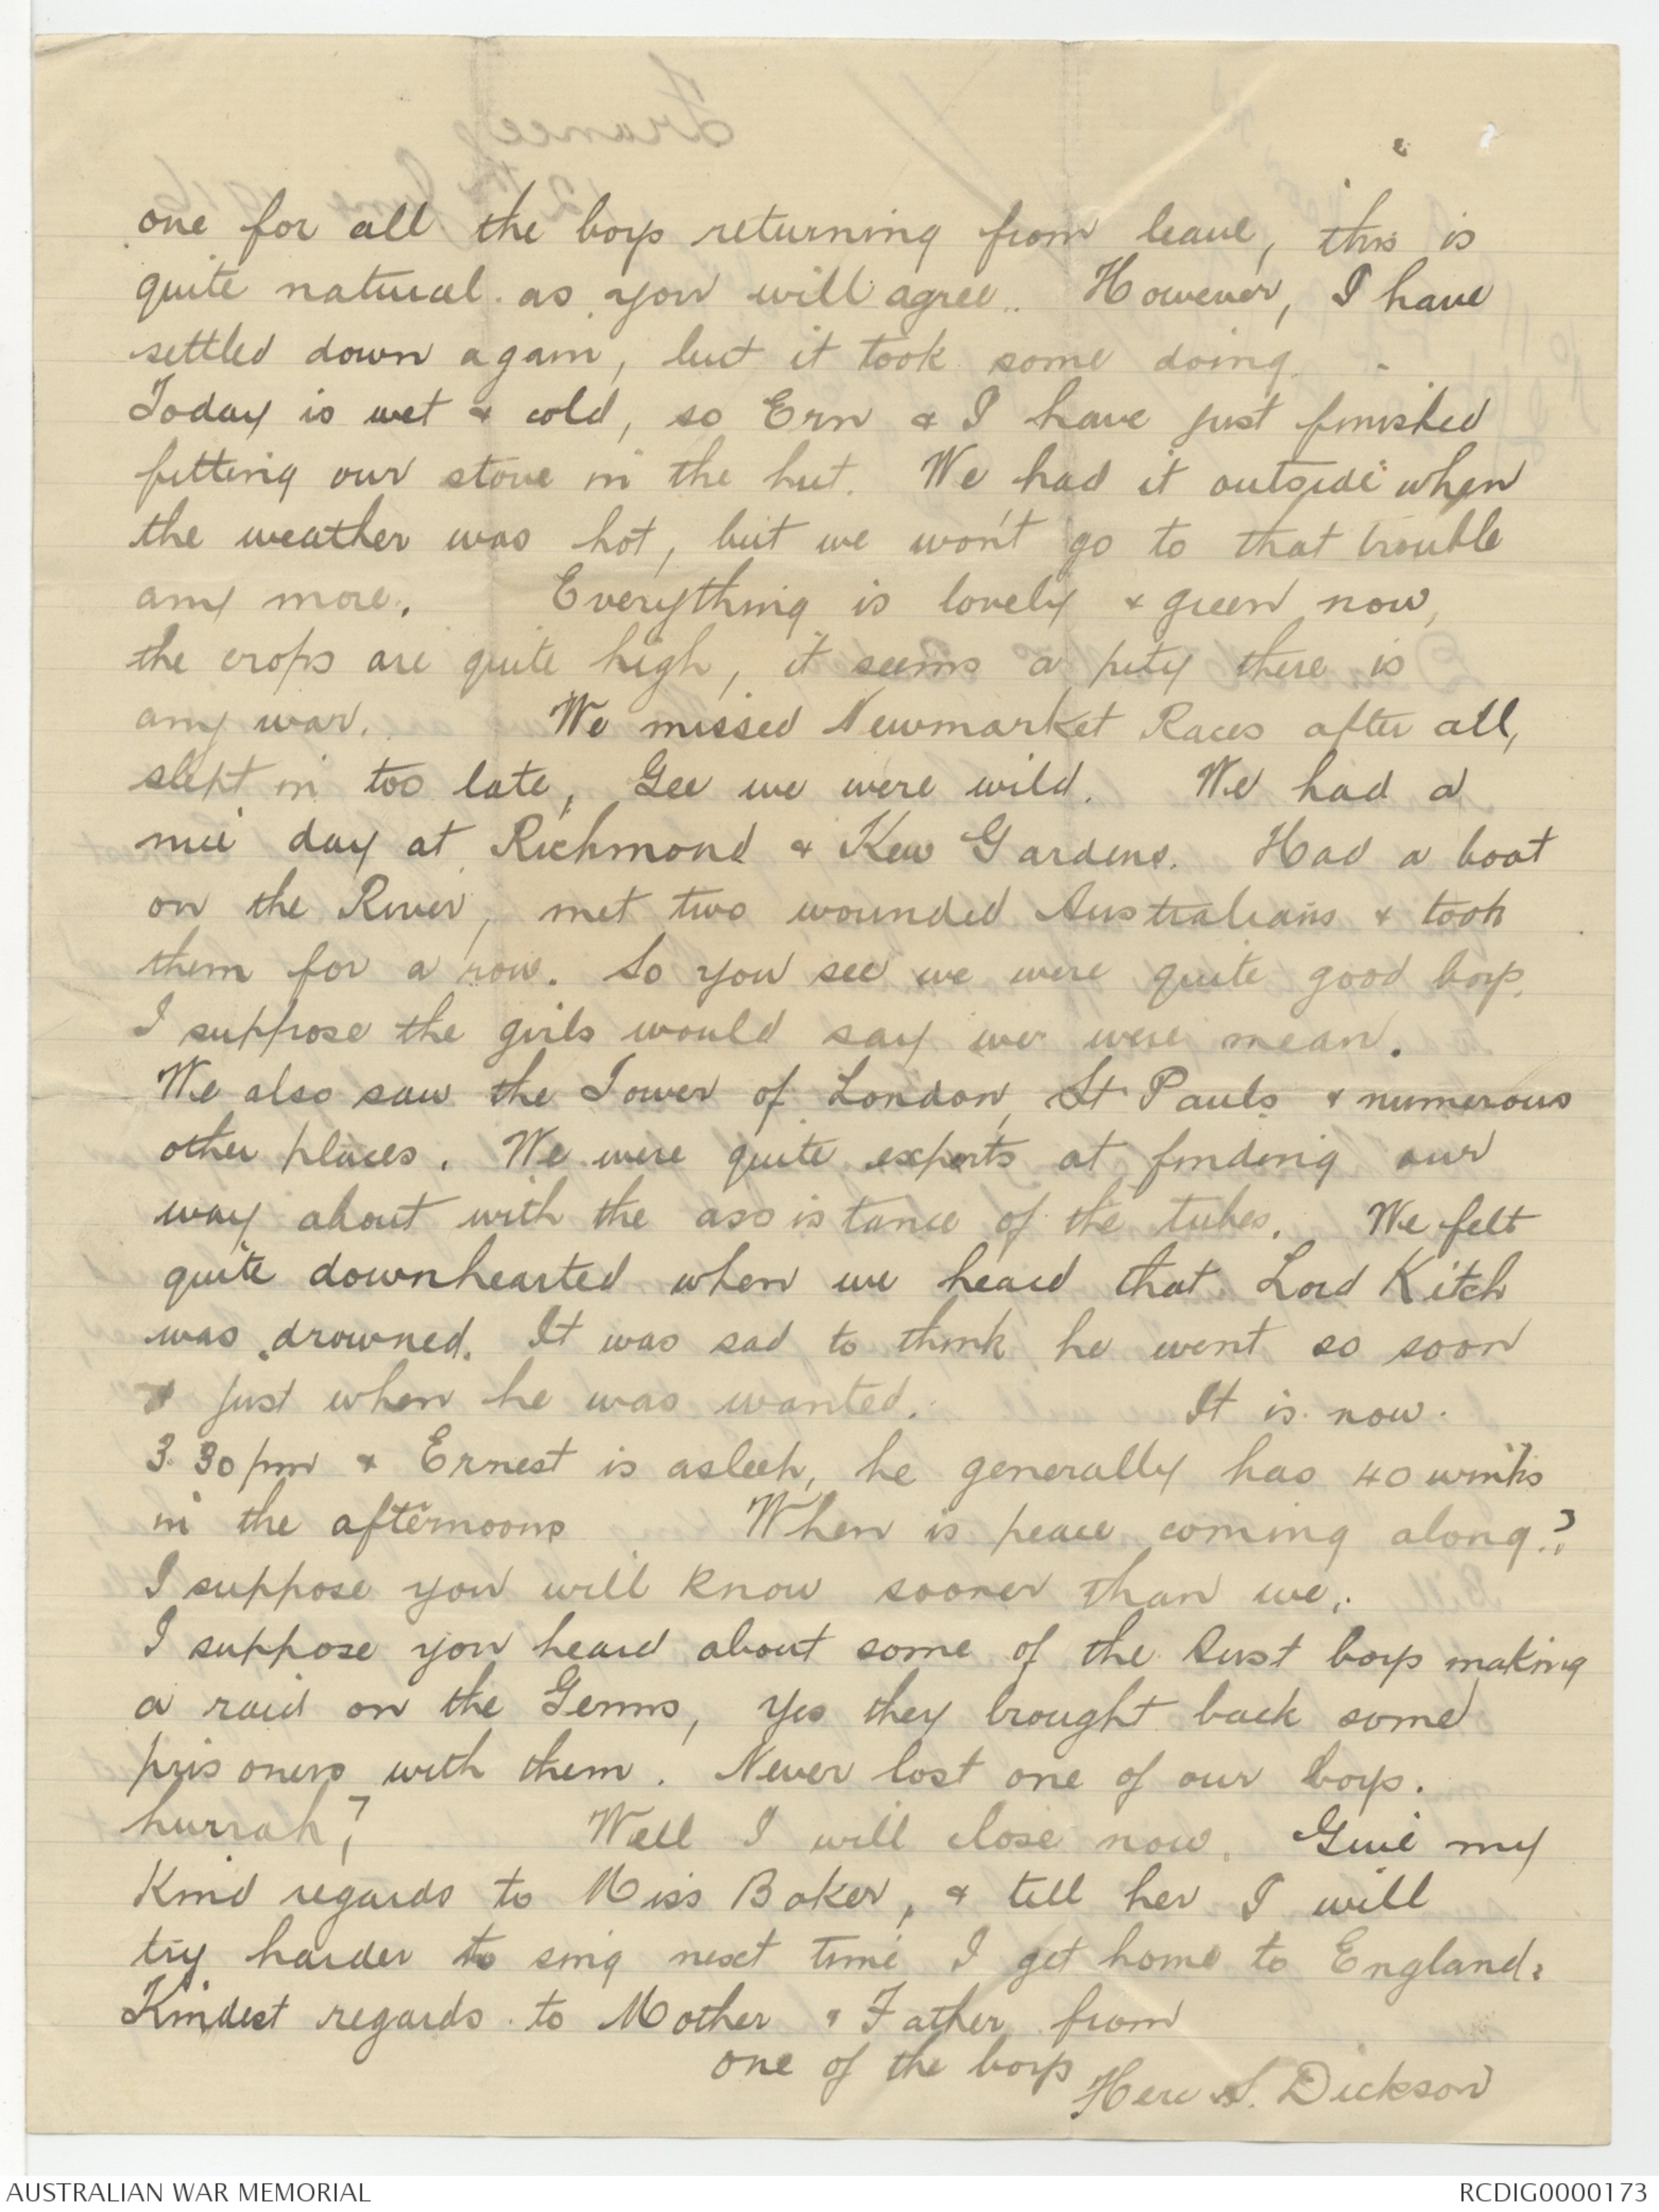 one for all the boys returning from leave, this is
quite natural as you will agree. However, I have
settled down again, but it took some doing.
Today is wet & cold, so Ern & I have just finished
fitting our stove in the hut. We had it outside when
the weather was hot, but we won't go to that trouble
any more. Everything is lovely & green now,
the crops are quite high, it seems a pity there is
any war. We missed Newmarket Races after all,
slept in too late, Gee we were wild. We had a
nice day at Richmond & Kew Gardens. Had a boat
on the River, met two wounded Australians & took
them for a row. So you see we were quite good boys.
I suppose the girls would say we were mean.
We also saw the Tower of London, St Pauls & numerous
other places. We were quite experts at finding our
way about with the assistance of the tubes. We felt
quite downhearted when we heard that Lord Kitch
was drowned. It was sad to think he went so soon
& just when he was wanted. It is now
3.30 pm & Ernest is asleep, he generally has 40 winks
in the afternoons When is peace coming along?
I suppose you will know sooner than we.
I suppose you heard about some of the Aust boys making
a raid on the Germs, yes they brought back some
prisoners with them. Never lost one of our boys.
hurrah! Well I will close now. Give my
Kind regards to Miss Baker, & tell her I will
try harder to sing next time I get home to England.
Kindest regards to Mother & Father from
one of the boys
S. Dickson
France
12th June 1916
AUSTRALIAN WAR MEMORIAL
RCDIG0000173